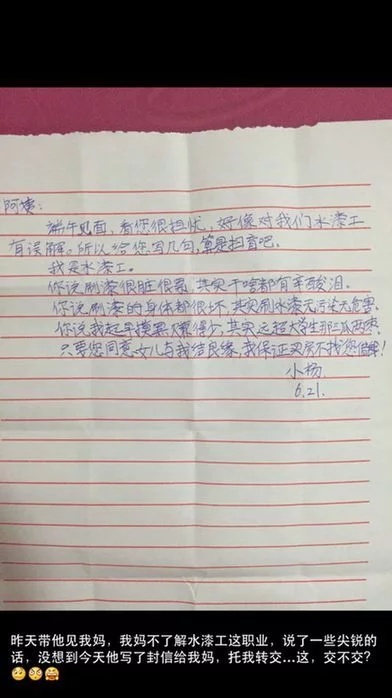 阿姨：
端午见面，看您很担忧，好像对我们水漆工
有误解。所以给您写几句，算是扫盲吧。
我是水漆工。
你说刷漆很脏很累，其实干啥都有辛酸泪。
你说刷漆的身体都很坏，其实刷水漆无污染无危害。
你说我起早摸黑赚得少，其实远超大学生那三瓜两枣
只要您同意女儿与我结良缘，我保证买房不找您借钱！
小杨
6.21.
昨天带他见我妈，我妈不了解水漆工这职业，说了一些尖锐的
话，没想到今天他写了封信给我妈，托我转交...这，交不交？